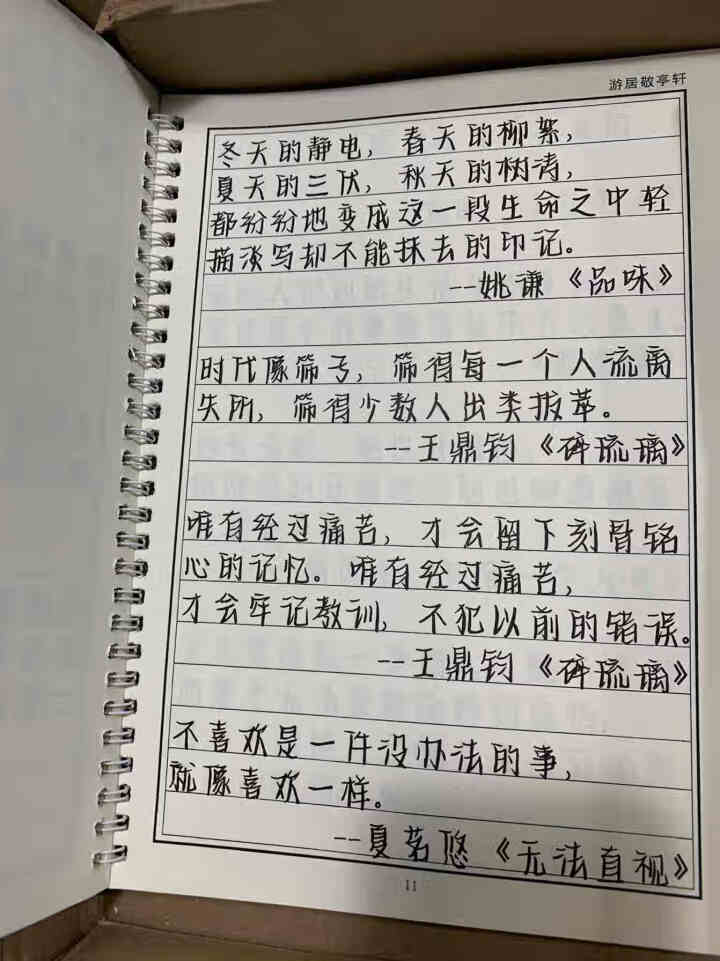 游居敬亭轩
冬天的静电，春天的柳絮，
夏天的三伏，秋天的树涛，
都纷纷地变成这一段生命之中轻
描淡写却不能抹去的印记。
--姚谦《品味》
时代像筛子，筛得每一个人流离
失所，筛得少数人出类拔萃。
--王鼎钧《碎琉璃》
唯有经过痛苦，才会留下刻骨铭
心的记忆。唯有经过痛苦，
才会牢记教训，不犯以前的错误。
--王鼎钧《碎琉璃》
不喜欢是一件没办法的事，
就像喜欢一样。
--夏茗悠《无法直视》
11